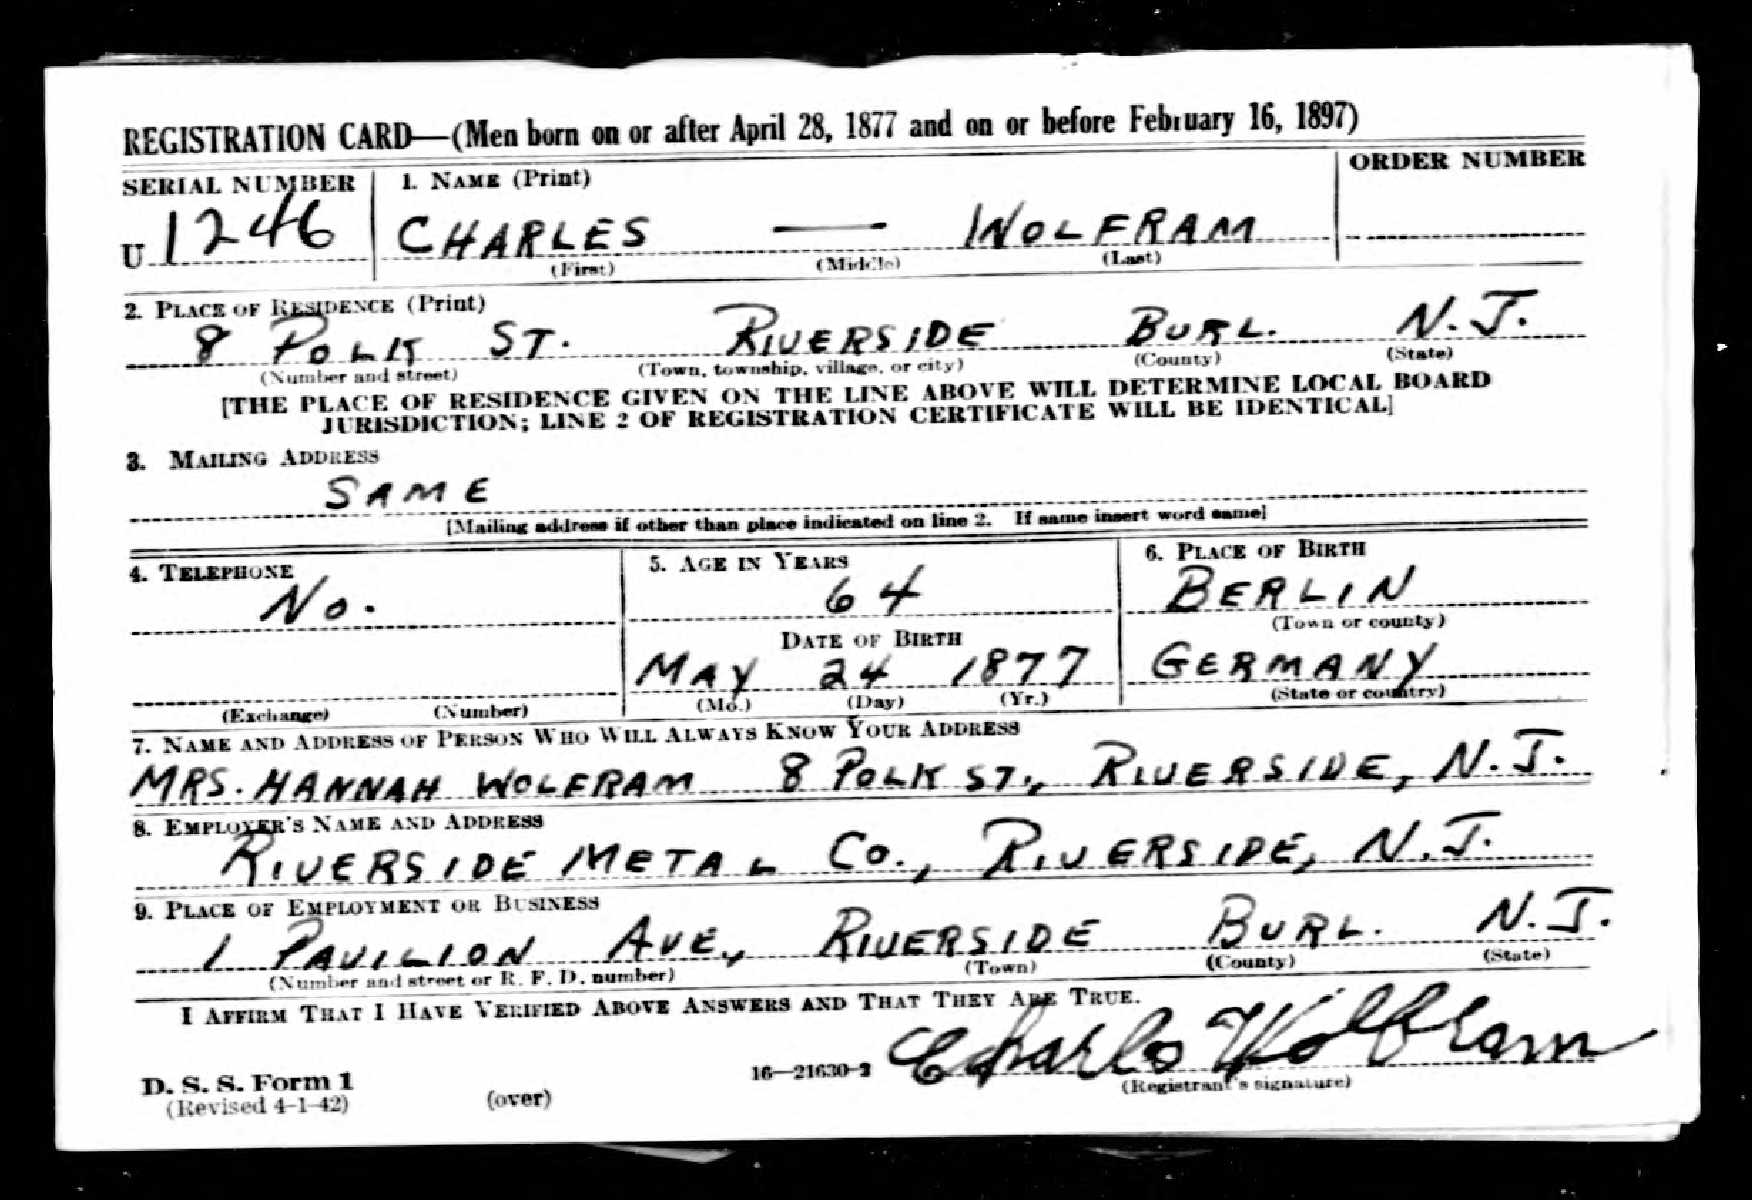 REGISTRATION CARD—(Men born on or after April 28, 1877 and on or before February 16, 1897)
SERIAL NUMBER 1. NAME (Print) ORDER NUMBER
U 1246 CHARLES — WOLFRAM
(First) (Middle) (Last)
2. PLACE OF RESIDENCE (Print)
8 POLK ST. RIVERSIDE BURL. N.J.
(Number and street) (Town, township, village, or city) (County) (State)
[THE PLACE OF RESIDENCE GIVEN ON THE LINE ABOVE WILL DETERMINE LOCAL BOARD
JURISDICTION; LINE 2 OF REGISTRATION CERTIFICATE WILL BE IDENTICAL]
3. MAILING ADDRESS
SAME
[Mailing address if other than place indicated on line 2. If same insert word same]
4. TELEPHONE 5. AGE IN YEARS 6. PLACE OF BIRTH
No. 64 BERLIN
DATE OF BIRTH (Town or county)
MAY 24 1877 GERMANY
(Exchange) (Number) (Mo.) (Day) (Yr.) (State or country)
7. NAME AND ADDRESS OF PERSON WHO WILL ALWAYS KNOW YOUR ADDRESS
MRS. HANNAH WOLFRAM 8 POLK ST., RIVERSIDE, N.J.
8. EMPLOYER'S NAME AND ADDRESS
RIVERSIDE METAL CO., RIVERSIDE, N.J.
9. PLACE OF EMPLOYMENT OR BUSINESS
1 PAVILION AVE, RIVERSIDE BURL. N.J.
(Number and street or R. F. D. number) (Town) (County) (State)
I AFFIRM THAT I HAVE VERIFIED ABOVE ANSWERS AND THAT THEY ARE TRUE.
Charles Wolfram
D. S. S. Form 1 16—21630-2 (Registrant's signature)
(Revised 4-1-42) (over)